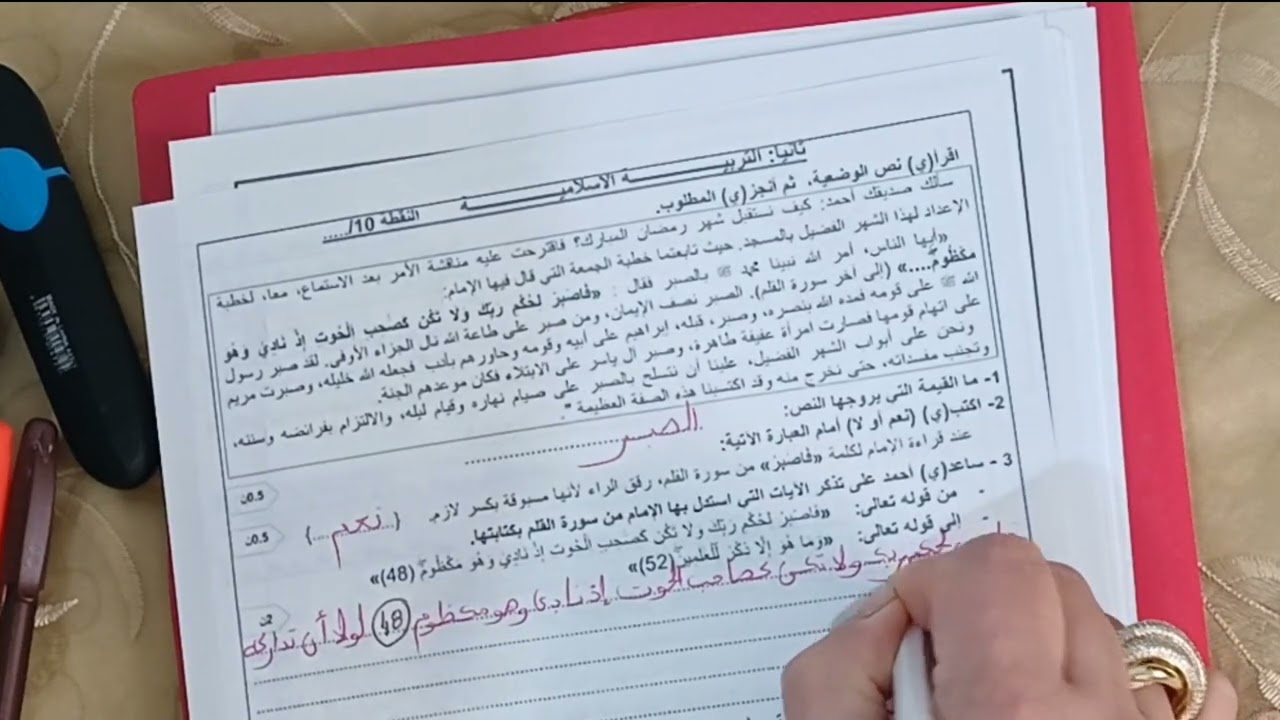 ثانيا: التربيـــــــــة الاسلاميــــــــــة النقطة 10/.....
اقرأ(ي) نص الوضعية، ثم أنجز(ي) المطلوب.
سألك صديقك أحمد: كيف نستقبل شهر رمضان المبارك؟ فاقترحت عليه مناقشة الأمر بعد الاستماع، معا، لخطبة
الإعداد لهذا الشهر الفضيل بالمسجد. حيث تابعتما خطبة الجمعة التي قال فيها الإمام:
«أيها الناس، أمر الله نبينا محمد ﷺ بالصبر فقال : «فَاصْبِرْ لِحُكْمِ رَبِّكَ وَلَا تَكُن كَصَاحِبِ الْحُوتِ إِذْ نَادَىٰ وَهُوَ
مَكْظُومٌ....» (إلى آخر سورة القلم). الصبر نصف الإيمان، ومن صبر على طاعة الله نال الجزاء الأوفى. لقد صبر رسول
الله ﷺ على قومه فمده الله بنصره، وصبر، قبله، إبراهيم على أبيه وقومه وحاورهم بأدب فجعله الله خليله، وصبرت مريم
على اتهام قومها فصارت امرأة عفيفة طاهرة، وصبر آل ياسر على الابتلاء فكان موعدهم الجنة.
ونحن على أبواب الشهر الفضيل، علينا أن نتسلح بالصبر على صيام نهاره وقيام ليله، والالتزام بفرائضه وسننه،
وتجنب مفسداته، حتى نخرج منه وقد اكتسبنا هذه الصفة العظيمة ".
1- ما القيمة التي يروجها النص: الصبر
0.5ن
2- اكتب(ي) (نعم أو لا) أمام العبارة الآتية:
عند قراءة الإمام لكلمة «فاصبر» من سورة القلم، رقق الراء لأنها مسبوقة بكسر لازم. {..نعم..}
0.5ن
3 - ساعد(ي) أحمد على تذكر الآيات التي استدل بها الإمام من سورة القلم بكتابتها.
- من قوله تعالى: «فَاصْبِرْ لِحُكْمِ رَبِّكَ وَلَا تَكُن كَصَاحِبِ الْحُوتِ إِذْ نَادَىٰ وَهُوَ مَكْظُومٌ (48)»
- إلى قوله تعالى: «وَمَا هُوَ إِلَّا ذِكْرٌ لِّلْعَالَمِينَ (52)»
2ن
ربك ولا تكن كصاحب الحوت إذ نادى وهو مكظوم 48 لولا أن تداركه